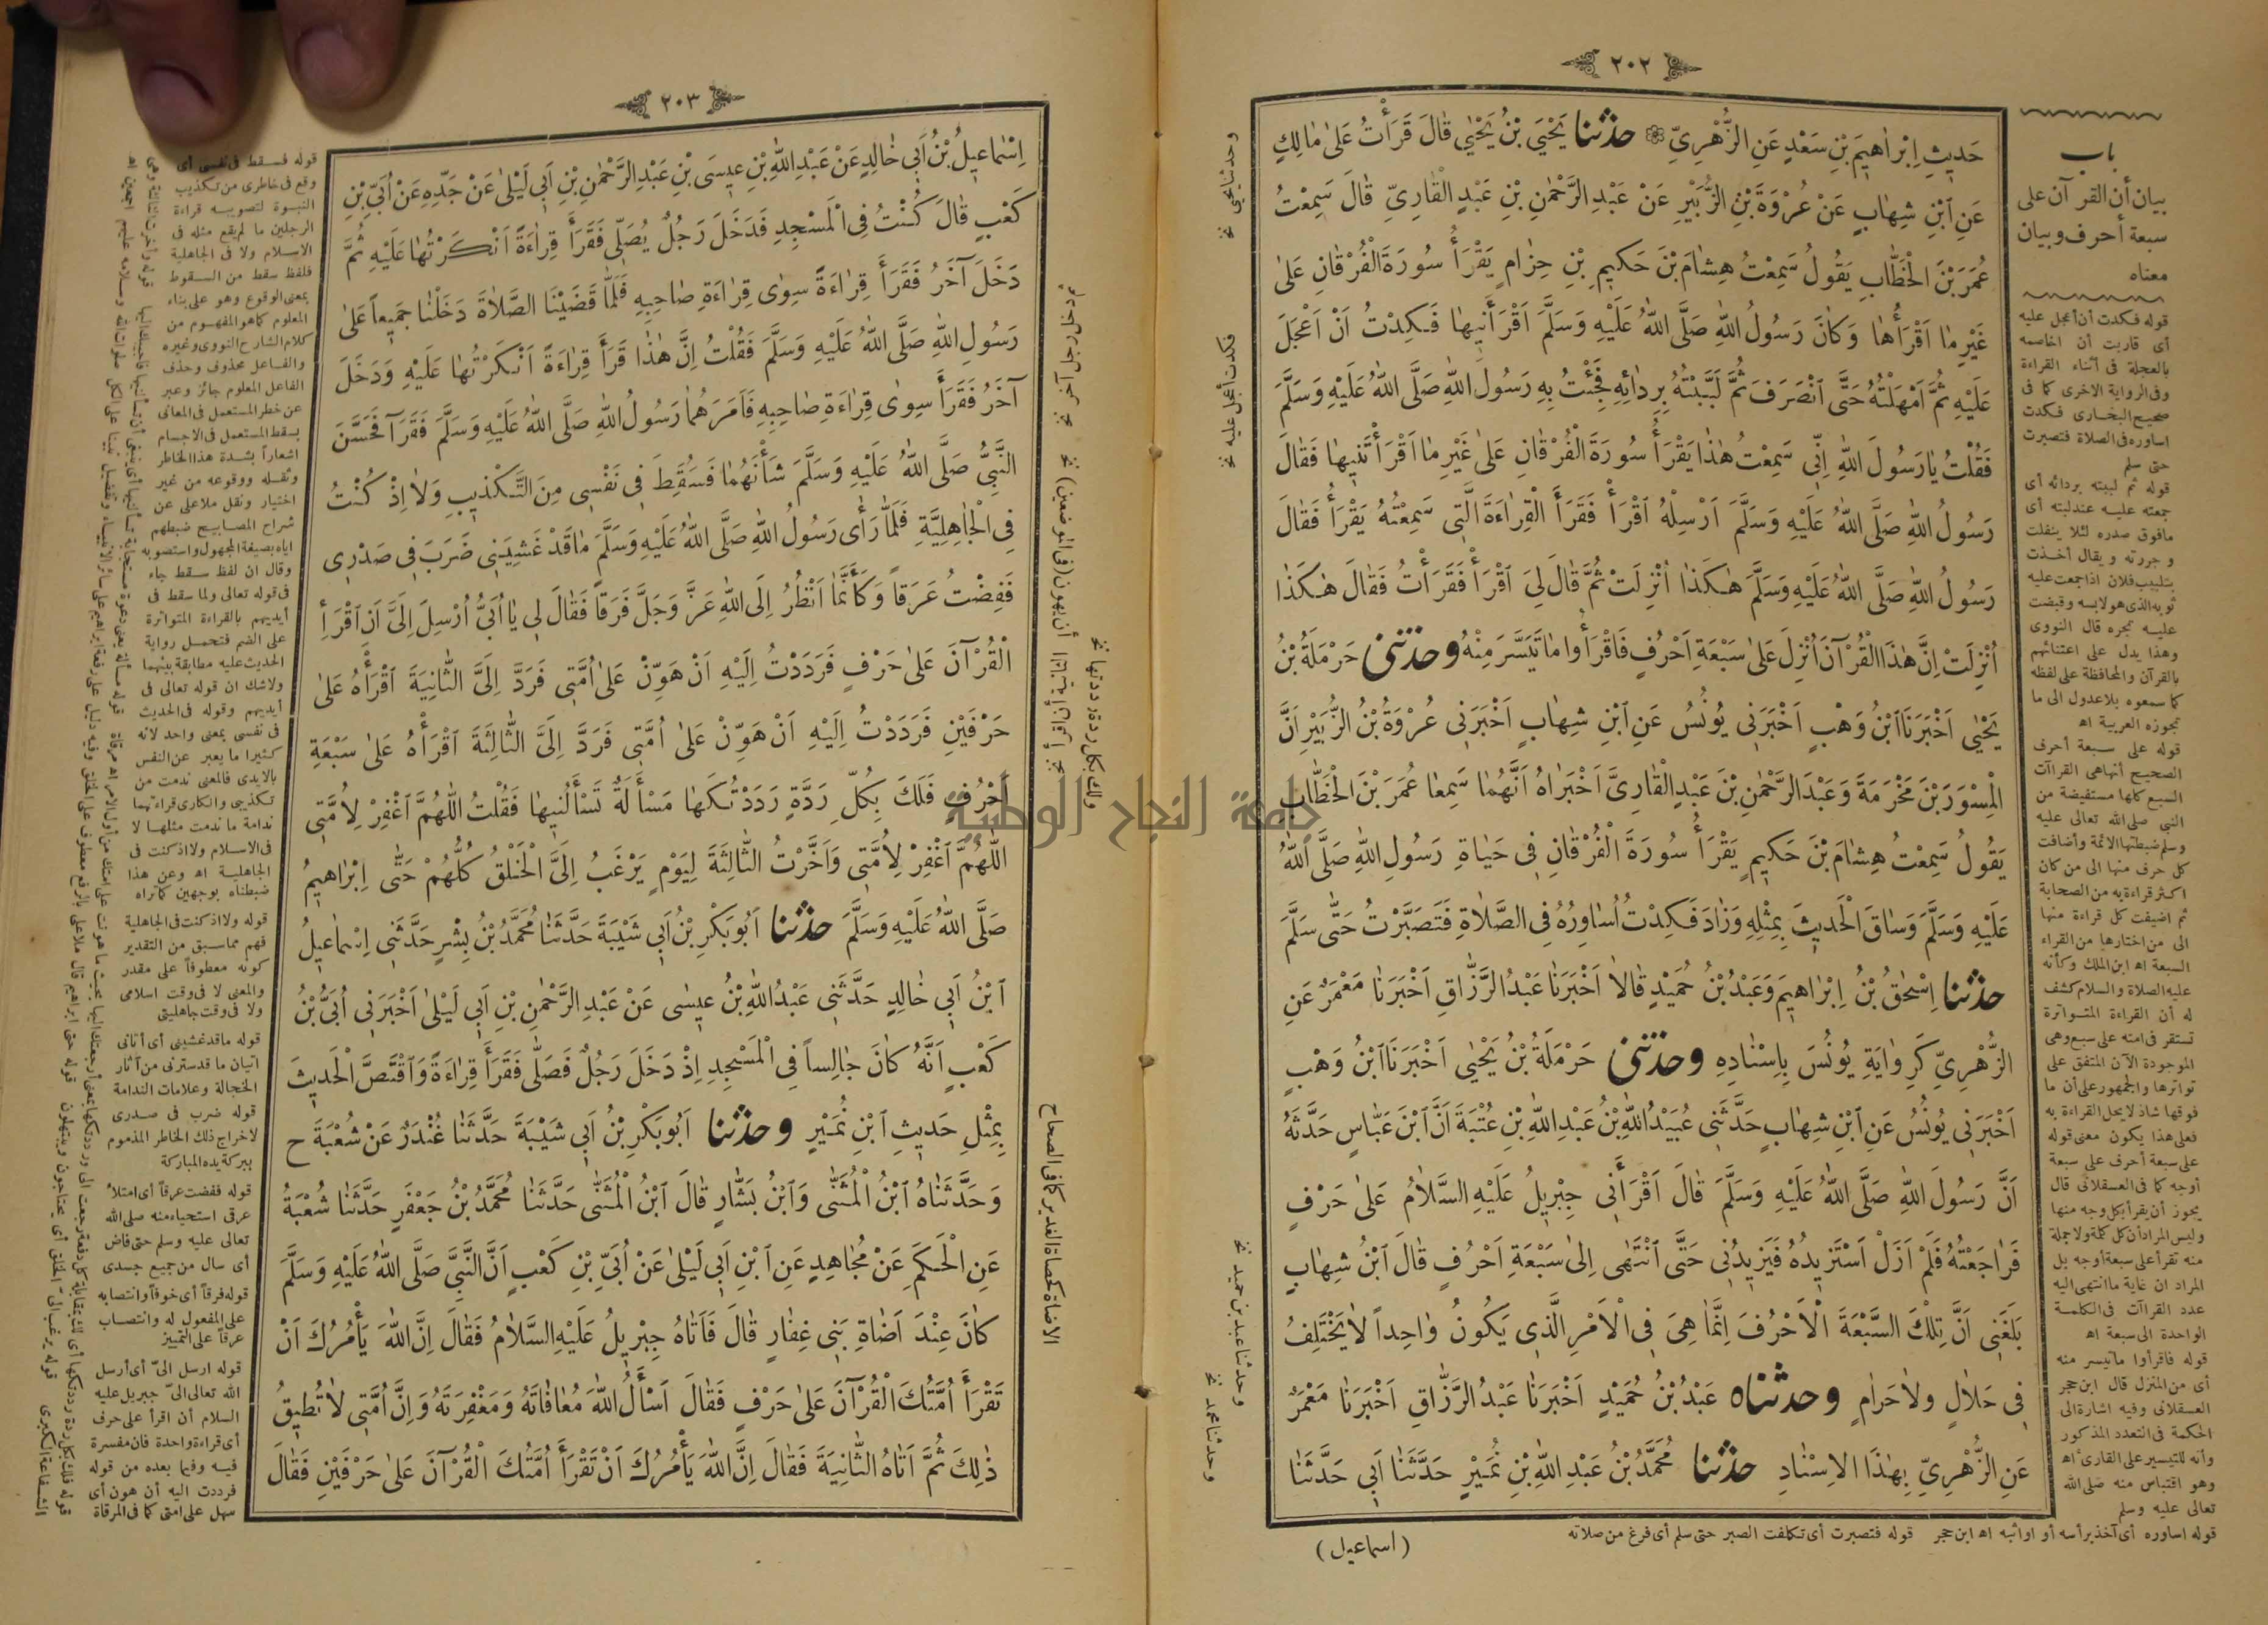 ٢٠٢
حَديثِ اِبْرٰاهيمَ بْنِ سَعْدٍ عَنِ الزُّهْرِيِّ ۞ حدثنا يَحْيَى بْنُ يَحْيٰي قٰالَ قَرَأْتُ عَلىٰ مٰالِكٍ
عَنِ ابْنِ شِهٰابٍ عَنْ عُرْوَةَ بْنِ الزُّبَيْرِ عَنْ عَبْدِ الرَّحْمٰنِ بْنِ عَبْدٍ الْقٰارِيِّ قٰالَ سَمِعْتُ
عُمَرَ بْنَ الْخَطّٰابِ يَقُولُ سَمِعْتُ هِشٰامَ بْنَ حَكيمِ بْنِ حِزٰامٍ يَقْرَأُ سُورَةَ الْفُرْقٰانِ عَلىٰ
غَيْرِ مٰا اَقْرَأُهٰا وَكٰانَ رَسُولُ اللهِ صَلَّى اللهُ عَلَيْهِ وَسَلَّمَ اَقْرَأَنيهٰا فَكِدْتُ اَنْ اَعْجَلَ
عَلَيْهِ ثُمَّ اَمْهَلْتُهُ حَتَّى انْصَرَفَ ثُمَّ لَبَّبْتُهُ بِرِدٰائِهِ فَجِئْتُ بِهِ رَسُولَ اللهِ صَلَّى اللهُ عَلَيْهِ وَسَلَّمَ
فَقُلْتُ يٰا رَسُولَ اللهِ اِنّي سَمِعْتُ هٰذٰا يَقْرَأُ سُورَةَ الْفُرْقٰانِ عَلىٰ غَيْرِ مٰا اَقْرَأْتَنيهٰا فَقٰالَ
رَسُولُ اللهِ صَلَّى اللهُ عَلَيْهِ وَسَلَّمَ اَرْسِلْهُ اقْرَأْ فَقَرَأَ الْقِرٰاءَةَ الَّتي سَمِعْتُهُ يَقْرَأُ فَقٰالَ
رَسُولُ اللهِ صَلَّى اللهُ عَلَيْهِ وَسَلَّمَ هٰكَذٰا اُنْزِلَتْ ثُمَّ قٰالَ لِيَ اقْرَأْ فَقَرَأْتُ فَقٰالَ هٰكَذٰا
اُنْزِلَتْ اِنَّ هٰذَا الْقُرْآنَ اُنْزِلَ عَلىٰ سَبْعَةِ اَحْرُفٍ فَاقْرَأُوا مٰا تَيَسَّرَ مِنْهُ وحدثني حَرْمَلَةُ بْنُ
يَحْيٰى اَخْبَرَنَا ابْنُ وَهْبٍ اَخْبَرَني يُونُسُ عَنِ ابْنِ شِهٰابٍ اَخْبَرَني عُرْوَةُ بْنُ الزُّبَيْرِ اَنَّ
الْمِسْوَرَ بْنَ مَخْرَمَةَ وَعَبْدَ الرَّحْمٰنِ بْنَ عَبْدٍ الْقٰارِيَّ اَخْبَرٰاهُ اَنَّهُمٰا سَمِعٰا عُمَرَ بْنَ الْخَطّٰابِ
يَقُولُ سَمِعْتُ هِشٰامَ بْنَ حَكيمٍ يَقْرَأُ سُورَةَ الْفُرْقٰانِ في حَيٰاةِ رَسُولِ اللهِ صَلَّى اللهُ
عَلَيْهِ وَسَلَّمَ وَسٰاقَ الْحَديثَ بِمِثْلِهِ وَزٰادَ فَكِدْتُ اُسٰاوِرُهُ فِي الصَّلاٰةِ فَتَصَبَّرْتُ حَتّٰى سَلَّمَ
حدثنا اِسْحٰقُ بْنُ اِبْرٰاهيمَ وَعَبْدُ بْنُ حُمَيْدٍ قٰالاٰ اَخْبَرَنٰا عَبْدُ الرَّزّٰاقِ اَخْبَرَنٰا مَعْمَرٌ عَنِ
الزُّهْرِيِّ كَرِوٰايَةِ يُونُسَ بِاِسْنٰادِهِ وحدثني حَرْمَلَةُ بْنُ يَحْيٰي اَخْبَرَنَا ابْنُ وَهْبٍ
اَخْبَرَني يُونُسُ عَنِ ابْنِ شِهٰابٍ حَدَّثَني عُبَيْدُ اللهِ بْنُ عَبْدِ اللهِ بْنِ عُتْبَةَ اَنَّ ابْنَ عَبّٰاسٍ حَدَّثَهُ
اَنَّ رَسُولَ اللهِ صَلَّى اللهُ عَلَيْهِ وَسَلَّمَ قٰالَ اَقْرَأَني جِبْريلُ عَلَيْهِ السَّلاٰمُ عَلىٰ حَرْفٍ
فَرٰاجَعْتُهُ فَلَمْ اَزَلْ اَسْتَزيدُهُ فَيَزيدُني حَتَّى انْتَهٰى اِلىٰ سَبْعَةِ اَحْرُفٍ قٰالَ ابْنُ شِهٰابٍ
بَلَغَني اَنَّ تِلْكَ السَّبْعَةَ الْاَحْرُفَ اِنَّمٰا هِيَ فِي الْاَمْرِ الَّذي يَكُونُ وٰاحِداً لاٰ يَخْتَلِفُ
في حَلاٰلٍ ولاٰ حَرٰامٍ وحدثناه عَبْدُ بْنُ حُمَيْدٍ اَخْبَرَنٰا عَبْدُ الرَّزّٰاقِ اَخْبَرَنٰا مَعْمَرٌ
عَنِ الزُّهْرِيِّ بِهٰذَا الاِسْنٰادِ حدثنا مُحَمَّدُ بْنُ عَبْدِ اللهِ بْنِ نُمَيْرٍ حَدَّثَنٰا اَبي حَدَّثَنٰا
(اسماعيل)
باب
بيان أن القرآن على
سبعة أحرف وبيان
معناه
قوله فكدت أن أعجل عليه
أى قاربت أن اخاصمه
بالعجلة فى أثناء القراءة
وفى الرواية الاخرى كما فى
صحيح البخارى فكدت
اساوره فى الصلاة فتصبرت
حتى سلم
قوله ثم لببته بردائه أى
جمعته عليه عند لبته أى
مافوق صدره لئلا ينفلت
وجررته ويقال أخذت
بتلبيب فلان اذا جمعت عليه
ثوبه الذى هو لابسه وقبضت
عليه تجره قال النووى
وهذا يدل على اعتنائهم
بالقرآن والمحافظة على لفظه
كما سمعوه بلا عدول الى ما
تجوزه العربية اه
قوله على سبعة أحرف
الصحيح أنها هى القراآت
السبع كلها مستفيضة من
النبى صلى الله تعالى عليه
وسلم ضبطتها الائمة وأضافت
كل حرف منها الى من كان
اكثر قراءة به من الصحابة
ثم اضيفت كل قراءة منها
الى من اختارها من القراء
السبعة اه ابن الملك وكأنه
عليه الصلاة والسلام كشف
له أن القراءة المتواترة
تستقر فى امته على سبع وهى
الموجودة الآن المتفق على
تواترها والجمهور على أن ما
فوقها شاذ لا يحل القراءة به
فعلى هذا يكون معنى قوله
على سبعة أحرف على سبعة
أوجه كما فى العسقلانى قال
يجوز أن يقرأ بكل وجه منها
وليس المراد أن كل كلمة ولا جملة
منه تقرأ على سبعة أوجه بل
المراد ان غاية ما انتهى اليه
عدد القراآت فى الكلمة
الواحدة الى سبعة اه
قوله فاقرأوا ماتيسر منه
أى من المنزل قال ابن حجر
العسقلانى وفيه اشارة الى
الحكمة فى التعدد المذكور
وأنه للتيسير على القارئ اه
وهو اقتباس منه صلى الله
تعالى عليه وسلم
قوله اساوره أى آخذ برأسه أو اواثبه اه ابن حجر قوله فتصبرت أى تكلفت الصبر حتى سلم أى فرغ من صلاته
وحدثنا يحيى نخ
فكدت أعجل عليه نخ
وحدثنا عبد بن حميد نخ
وحدثنا محمد نخ
٢٠٣
اِسْمٰاعيلُ بْنُ اَبي خٰالِدٍ عَنْ عَبْدِ اللهِ بْنِ عيسَى بْنِ عَبْدِ الرَّحْمٰنِ بْنِ اَبي لَيْلىٰ عَنْ جَدِّهِ عَنْ اُبَيِّ بْنِ
كَعْبٍ قٰالَ كُنْتُ فِي الْمَسْجِدِ فَدَخَلَ رَجُلٌ يُصَلّي فَقَرَأَ قِرٰاءَةً اَنْكَرْتُهٰا عَلَيْهِ ثُمَّ
دَخَلَ آخَرُ فَقَرَأَ قِرٰاءَةً سِوٰى قِرٰاءَةِ صٰاحِبِهِ فَلَمّٰا قَضَيْنَا الصَّلاٰةَ دَخَلْنٰا جَميعاً عَلىٰ
رَسُولِ اللهِ صَلَّى اللهُ عَلَيْهِ وَسَلَّمَ فَقُلْتُ اِنَّ هٰذٰا قَرَأَ قِرٰاءَةً اَنْكَرْتُهٰا عَلَيْهِ وَدَخَلَ
آخَرُ فَقَرَأَ سِوٰى قِرٰاءَةِ صٰاحِبِهِ فَاَمَرَهُمٰا رَسُولُ اللهِ صَلَّى اللهُ عَلَيْهِ وَسَلَّمَ فَقَرَآ فَحَسَّنَ
النَّبِيُّ صَلَّى اللهُ عَلَيْهِ وَسَلَّمَ شَأْنَهُمٰا فَسُقِطَ في نَفْسي مِنَ التَّكْذيبِ وَلاٰ اِذْ كُنْتُ
فِي الْجٰاهِلِيَّةِ فَلَمّٰا رَأٰى رَسُولُ اللهِ صَلَّى اللهُ عَلَيْهِ وَسَلَّمَ مٰا قَدْ غَشِيَني ضَرَبَ في صَدْري
فَفِضْتُ عَرَقاً وَكَأَنَّمٰا اَنْظُرُ اِلَى اللهِ عَزَّ وَجَلَّ فَرَقاً فَقٰالَ لي يٰا اُبَيُّ اُرْسِلَ اِلَيَّ اَنِ اقْرَأِ
الْقُرْآنَ عَلىٰ حَرْفٍ فَرَدَدْتُ اِلَيْهِ اَنْ هَوِّنْ عَلىٰ اُمَّتي فَرَدَّ اِلَيَّ الثّٰانِيَةَ اقْرَأْهُ عَلىٰ
حَرْفَيْنِ فَرَدَدْتُ اِلَيْهِ اَنْ هَوِّنْ عَلىٰ اُمَّتي فَرَدَّ اِلَيَّ الثّٰالِثَةَ اقْرَأْهُ عَلىٰ سَبْعَةِ
اَحْرُفٍ فَلَكَ بِكُلِّ رَدَّةٍ رَدَدْتُكَهٰا مَسْأَلَةٌ تَسْأَلُنيهٰا فَقُلْتُ اللّٰهُمَّ اغْفِرْ لِاُمَّتي
اللّٰهُمَّ اغْفِرْ لِاُمَّتي وَاَخَّرْتُ الثّٰالِثَةَ لِيَوْمٍ يَرْغَبُ اِلَيَّ الْخَلْقُ كُلُّهُمْ حَتّٰى اِبْرٰاهيمُ
صَلَّى اللهُ عَلَيْهِ وَسَلَّمَ حدثنا اَبُو بَكْرِ بْنُ اَبي شَيْبَةَ حَدَّثَنٰا مُحَمَّدُ بْنُ بِشْرٍ حَدَّثَني اِسْمٰاعيلُ
ابْنُ اَبي خٰالِدٍ حَدَّثَني عَبْدُ اللهِ بْنُ عيسٰى عَنْ عَبْدِ الرَّحْمٰنِ بْنِ اَبي لَيْلىٰ اَخْبَرَني اُبَيُّ بْنُ
كَعْبٍ اَنَّهُ كٰانَ جٰالِساً فِي الْمَسْجِدِ اِذْ دَخَلَ رَجُلٌ فَصَلّٰى فَقَرَأَ قِرٰاءَةً وَاقْتَصَّ الْحَديثَ
بِمِثْلِ حَديثِ ابْنِ نُمَيْرٍ وحدثنا اَبُو بَكْرِ بْنُ اَبي شَيْبَةَ حَدَّثَنٰا غُنْدَرٌ عَنْ شُعْبَةَ ح
وَحَدَّثَنٰاهُ ابْنُ الْمُثَنّٰى وَابْنُ بَشّٰارٍ قٰالَ ابْنُ الْمُثَنّٰى حَدَّثَنٰا مُحَمَّدُ بْنُ جَعْفَرٍ حَدَّثَنٰا شُعْبَةُ
عَنِ الْحَكَمِ عَنْ مُجٰاهِدٍ عَنِ ابْنِ اَبي لَيْلىٰ عَنْ اُبَيِّ بْنِ كَعْبٍ اَنَّ النَّبِيَّ صَلَّى اللهُ عَلَيْهِ وَسَلَّمَ
كٰانَ عِنْدَ اَضٰاةِ بَني غِفٰارٍ قٰالَ فَاَتٰاهُ جِبْريلُ عَلَيْهِ السَّلاٰمُ فَقٰالَ اِنَّ اللهَ يَأْمُرُكَ اَنْ
تَقْرَأَ اُمَّتُكَ الْقُرْآنَ عَلىٰ حَرْفٍ فَقٰالَ اَسْأَلُ اللهَ مُعٰافٰاتَهُ وَمَغْفِرَتَهُ وَاِنَّ اُمَّتي لاٰ تُطيقُ
ذٰلِكَ ثُمَّ اَتٰاهُ الثّٰانِيَةَ فَقٰالَ اِنَّ اللهَ يَأْمُرُكَ اَنْ تَقْرَأَ اُمَّتُكَ الْقُرْآنَ عَلىٰ حَرْفَيْنِ فَقٰالَ
ودخل رجل آخر نخ
أن يهون (فى الموضعين) نخ
ولك بكل ردة رددتها نخ
الاضاة كحصاة الغدير كما فى الصحاح
قوله فسقط فى نفسى أى
وقع فى خاطرى من تكذيب
النبوة لتصويبه قراءة
الرجلين ما لم يقع مثله فى
الاسلام ولا فى الجاهلية
فلفظ سقط من السقوط
بمعنى الوقوع وهو على بناء
المعلوم كما هو المفهوم من
كلام الشارح النووى وغيره
والفاعل محذوف وحذف
الفاعل المعلوم جائز وعبر
عن خطر المستعمل فى المعانى
بسقط المستعمل فى الاجسام
اشعاراً بشدة هذا الخاطر
وثقله ووقوعه من غير
اختيار ونقل ملا على عن
شراح المصابيح ضبطهم
اياه بصيغة المجهول واستصوبه
وقال ان لفظ سقط جاء
فى قوله تعالى ولما سقط فى
أيديهم بالقراءة المتواترة
على الضم فتحمل رواية
الحديث عليه مطابقة بينهما
ولا شك ان قوله تعالى فى
أيديهم وقوله فى الحديث
فى نفسى بمعنى واحد لانه
كثيرا ما يعبر عن النفس
بالايدى فالمعنى ندمت من
تكذيبى وانكارى قراءتهما
ندامة ما ندمت مثلها لا
فى الاسلام ولا اذ كنت فى
الجاهلية اه وعن هذا
ضبطناه بوجهين كما تراه
قوله ولا اذ كنت فى الجاهلية
فهم مما سبق من التقدير
كونه معطوفاً على مقدر
والمعنى لا فى وقت اسلامى
ولا فى وقت جاهليتى
قوله ما قد غشينى أى أتانى
اتيان ما قد سترنى من آثار
الخجالة وعلامات الندامة
قوله ضرب فى صدرى
لاخراج ذلك الخاطر المذموم
ببركة يده المباركة
قوله ففضت عرقاً أى امتلأ
عرقى استحياء منه صلى الله
تعالى عليه وسلم حتى فاض
أى سال من جميع جسدى
قوله فرقاً أى خوفاً وانتصابه
على المفعول له وانتصاب
عرقاً على التمييز
قوله ارسل الىّ أى أرسل
الله تعالى الىّ جبريل عليه
السلام أن اقرأ على حرف
أى قراءة واحدة فان مفسرة
فيه وفيما بعده من قوله
فرددت اليه أن هون أى
سهل على امتى كما فى المرقاة
جامعة النجاح الوطنية